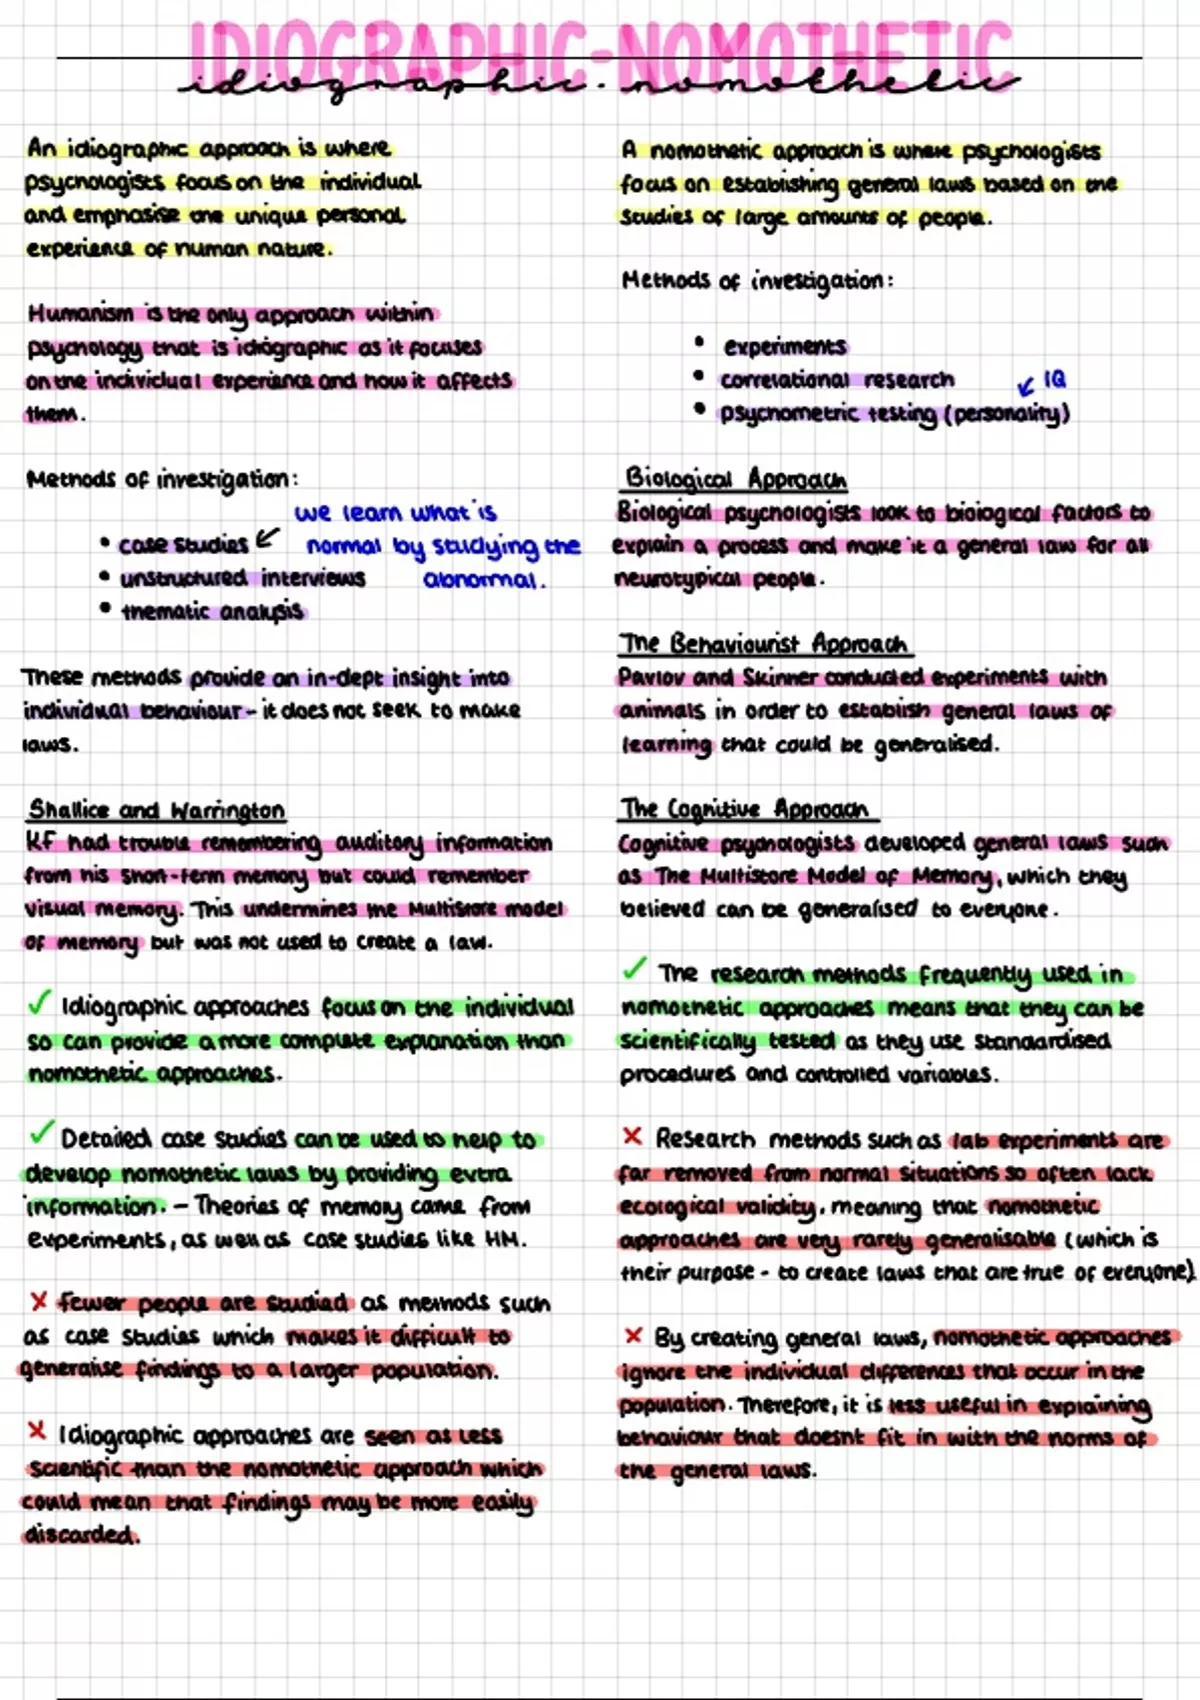 IDIOGRAPHIC-NOMOTHETIC
idiographic - nomothetic
An idiographic approach is where
psychologists focus on the individual
and emphasise the unique personal
experience of human nature.
Humanism is the only approach within
psychology that is idiographic as it focuses
on the individual experience and how it affects
them.
Methods of investigation:
we learn what is
• case studies ↙ normal by studying the
• unstructured interviews abnormal.
• thematic analysis
These methods provide an in-dept insight into
individual behaviour - it does not seek to make
laws.
Shallice and Warrington
KF had trouble remembering auditory information
from his short-term memory but could remember
visual memory. This undermines the Multistore model
of memory but was not used to create a law.
✓ Idiographic approaches focus on the individual
so can provide a more complete explanation than
nomothetic approaches.
✓ Detailed case studies can be used to help to
develop nomothetic laws by providing extra
information. - Theories of memory came from
experiments, as well as case studies like HM.
x Fewer people are studied as methods such
as case studies which makes it difficult to
generalise findings to a larger population.
x Idiographic approaches are seen as less
scientific than the nomothetic approach which
could mean that findings may be more easily
discarded.
A nomothetic approach is where psychologists
focus on establishing general laws based on the
studies of large amounts of people.
Methods of investigation:
• experiments
• correlational research ↙ IQ
• psychometric testing (personality)
Biological Approach
Biological psychologists look to biological factors to
explain a process and make it a general law for all
neurotypical people.
The Behaviourist Approach
Pavlov and Skinner conducted experiments with
animals in order to establish general laws of
learning that could be generalised.
The Cognitive Approach
Cognitive psychologists developed general laws such
as The Multistore Model of Memory, which they
believed can be generalised to everyone.
✓ The research methods frequently used in
nomothetic approaches means that they can be
scientifically tested as they use standardised
procedures and controlled variables.
x Research methods such as lab experiments are
far removed from normal situations so often lack
ecological validity, meaning that nomothetic
approaches are very rarely generalisable (which is
their purpose - to create laws that are true of everyone).
x By creating general laws, nomothetic approaches
ignore the individual differences that occur in the
population. Therefore, it is less useful in explaining
behaviour that doesnt fit in with the norms of
the general laws.